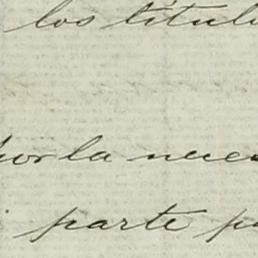 los títul
por la nece
parte p